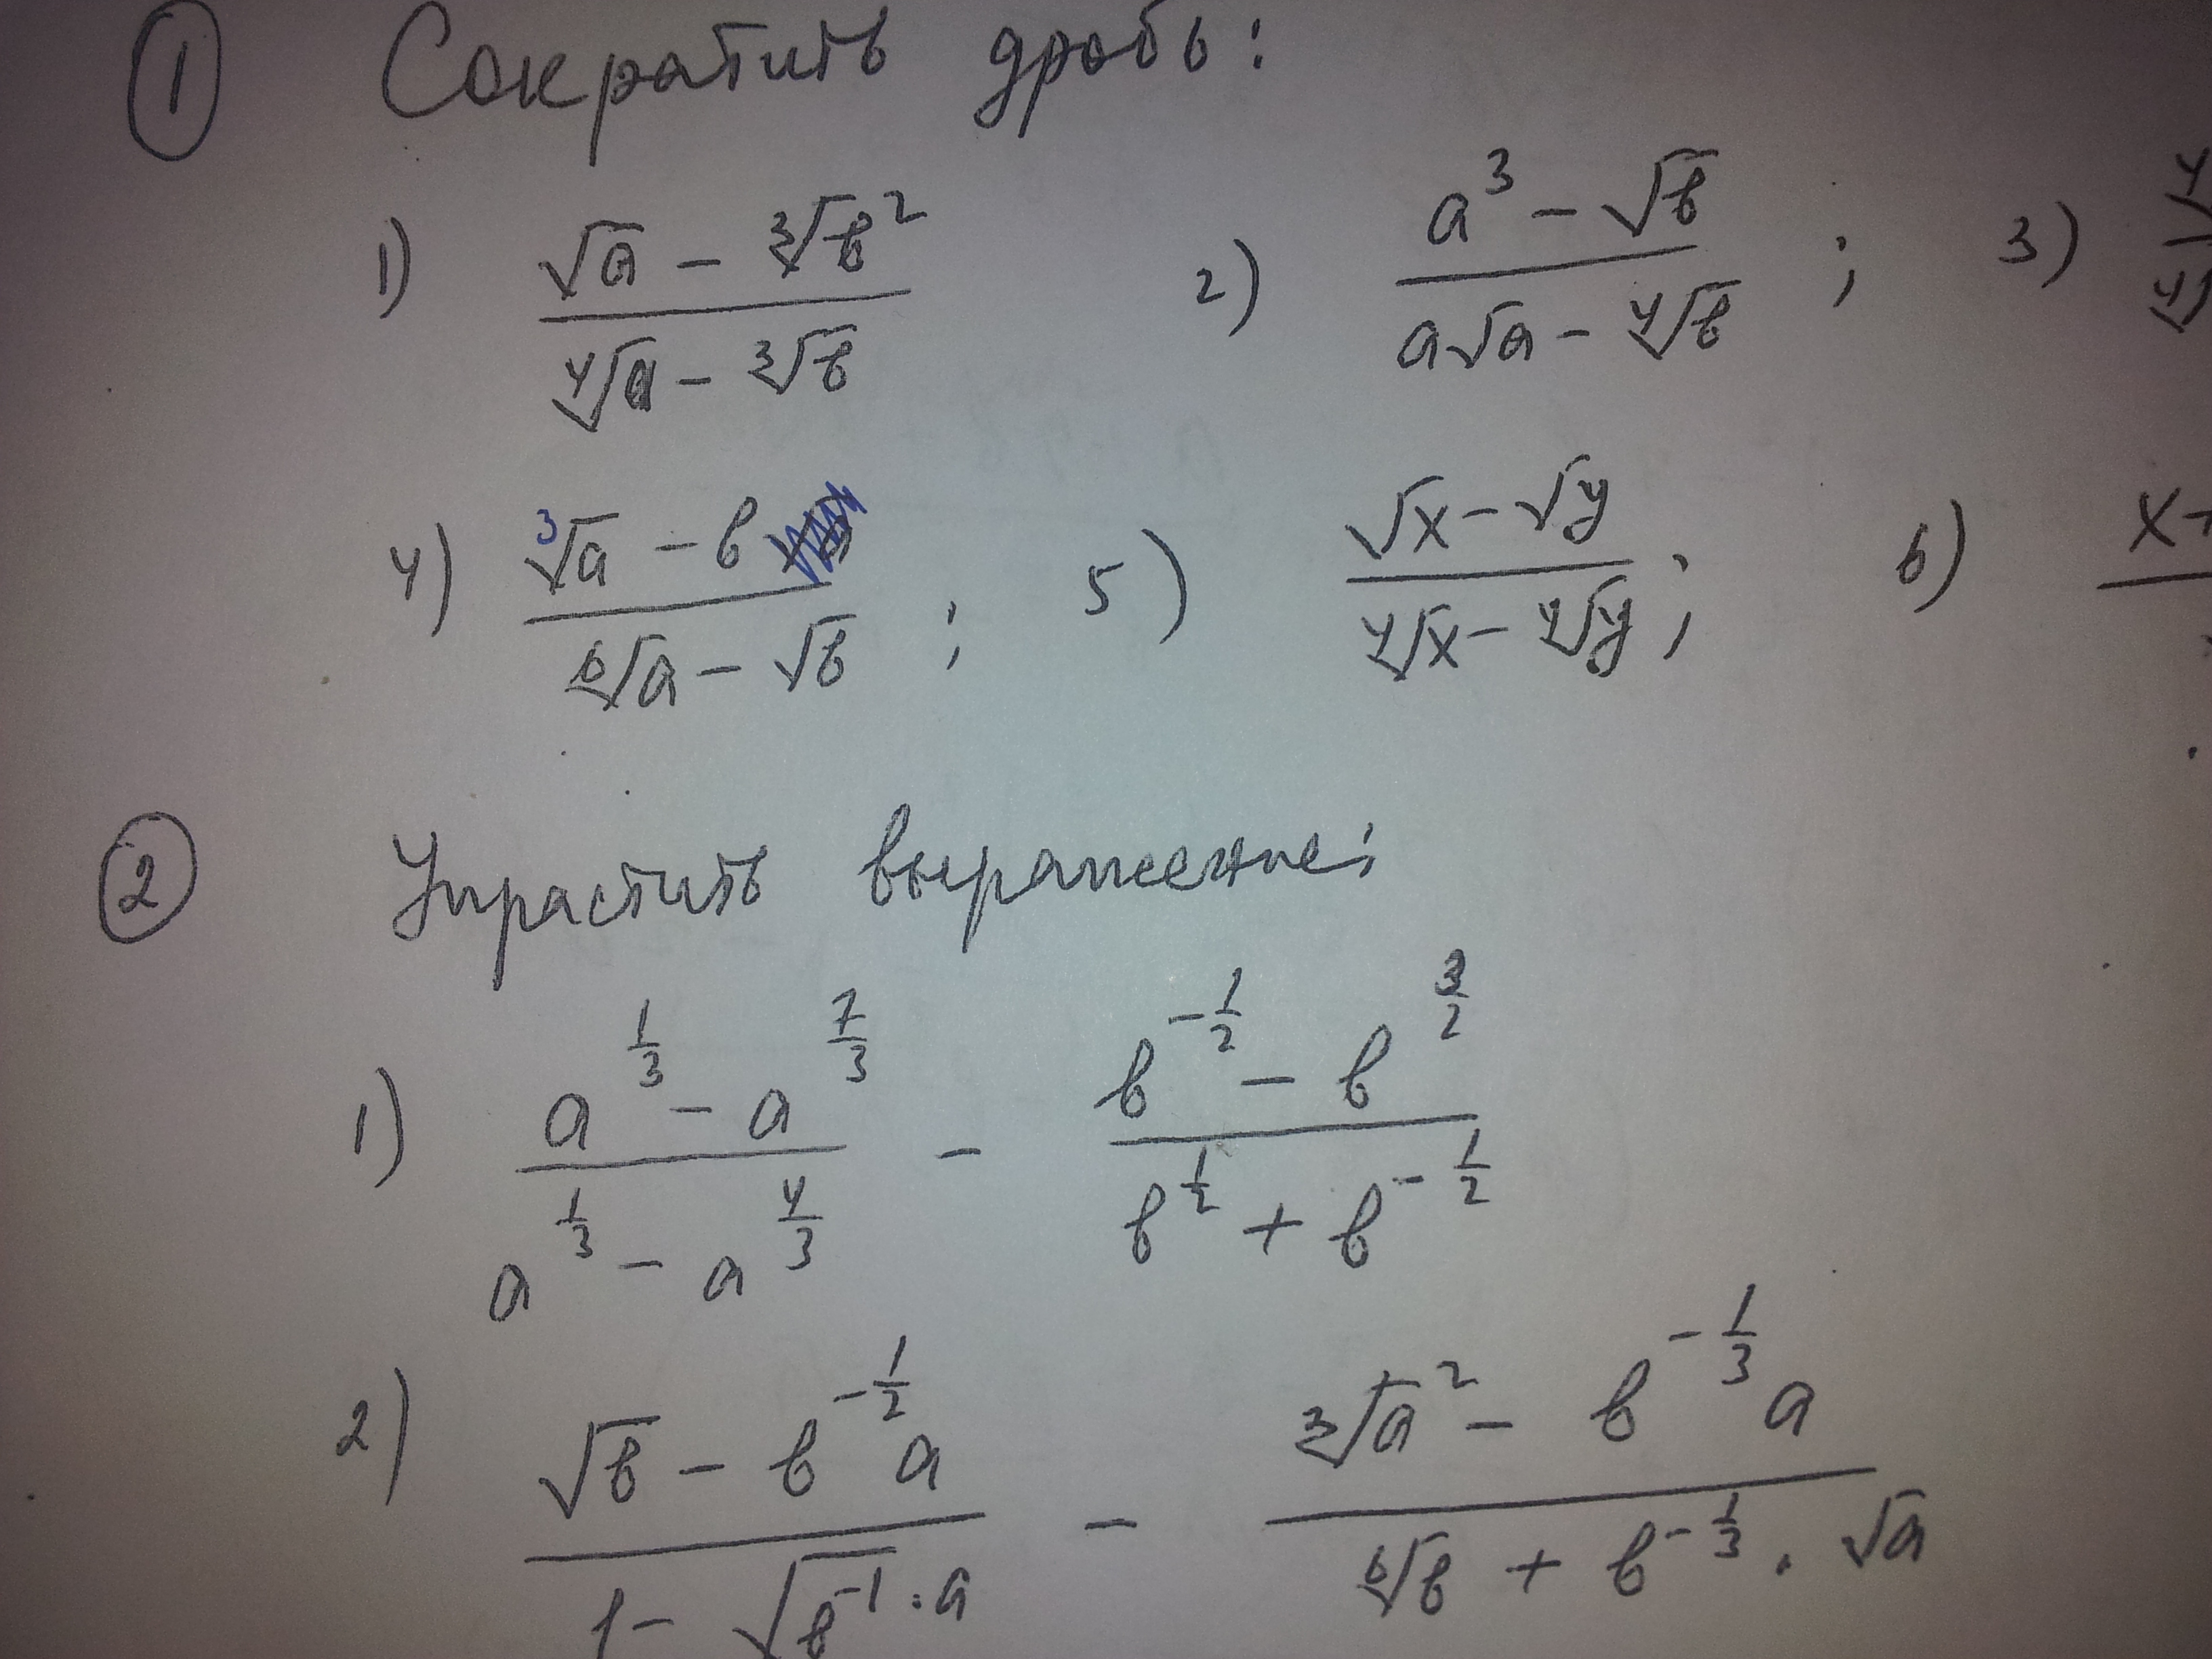 ① Сократить дробь:
1) (√a - ∛b²)/(∜a - ∛b) 2) (a³ - √b)/(a√a - ∜b) ; 3)
4) (∛a - b)/(⁶√a - √b) ; 5) (√x - √y)/(∜x - ∜y) ; 6) x
② Упрастить выражение:
1) (a^(1/3) - a^(7/3))/(a^(1/3) - a^(4/3)) - (b^(-1/2) - b^(3/2))/(b^(1/2) + b^(-1/2))
2) (√b - b^(-1/2) a)/(1 - √(b⁻¹) · a) - (∛a² - b^(-1/3) a)/(⁶√b + b^(-1/3) · √a)